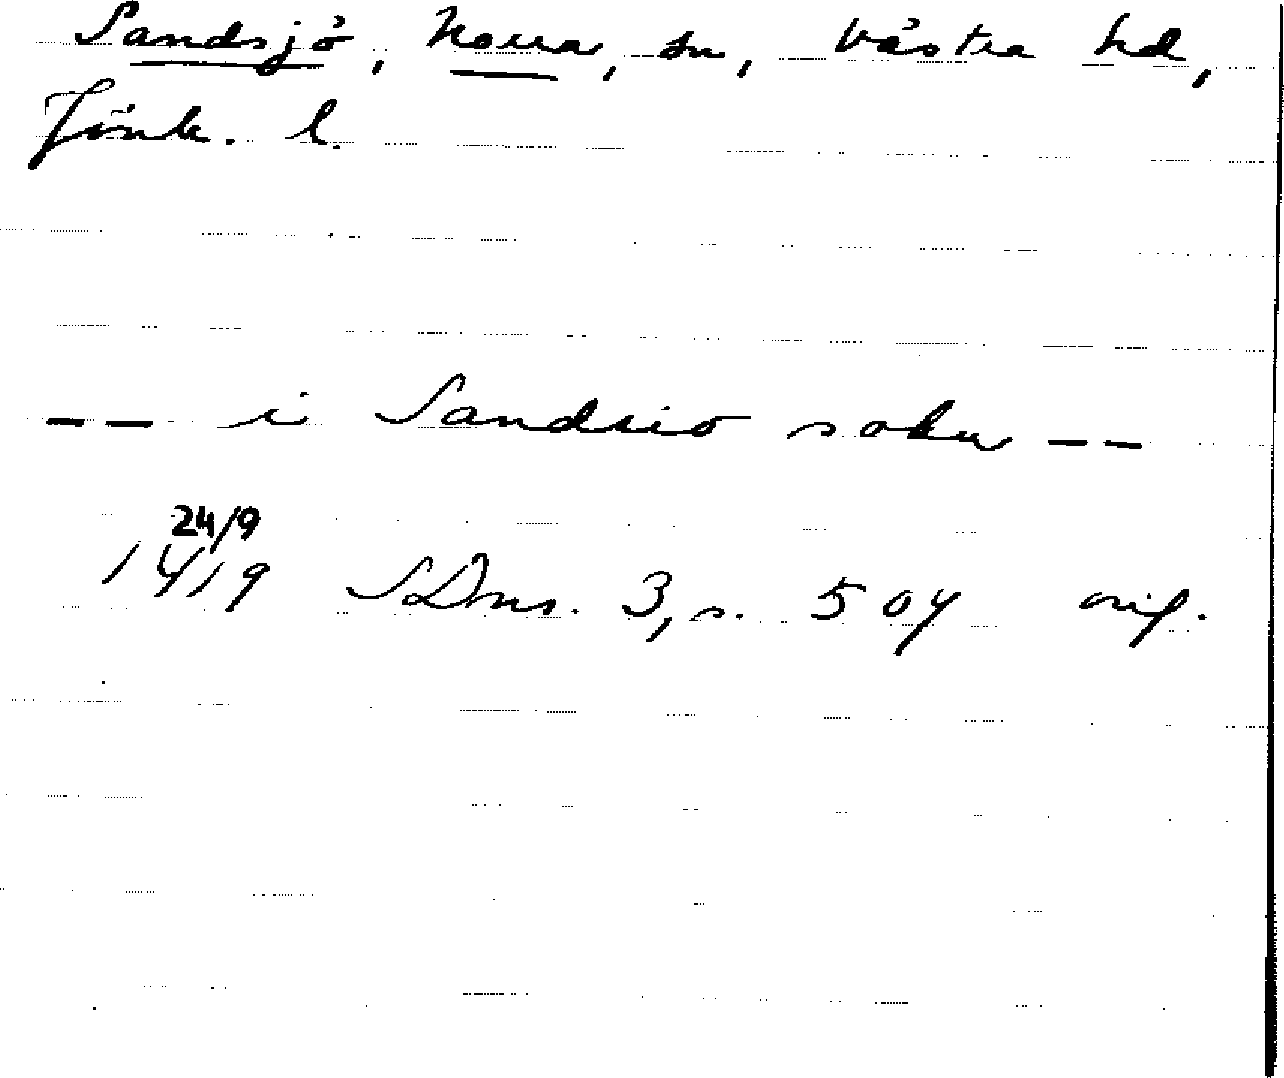 Sandsjö, Norra, sn, Västra hd,
Jönk. l.
-- i Sandzio sokn --
24/9
1419 SDns. 3, s. 504 orig.